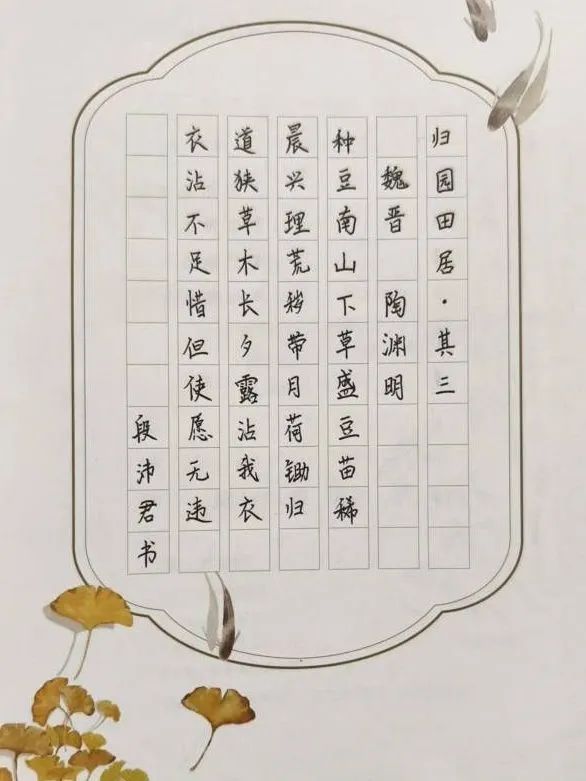 归园田居·其三
魏晋 陶渊明
种豆南山下草盛豆苗稀
晨兴理荒秽带月荷锄归
道狭草木长夕露沾我衣
衣沾不足惜但使愿无违
段沛君书